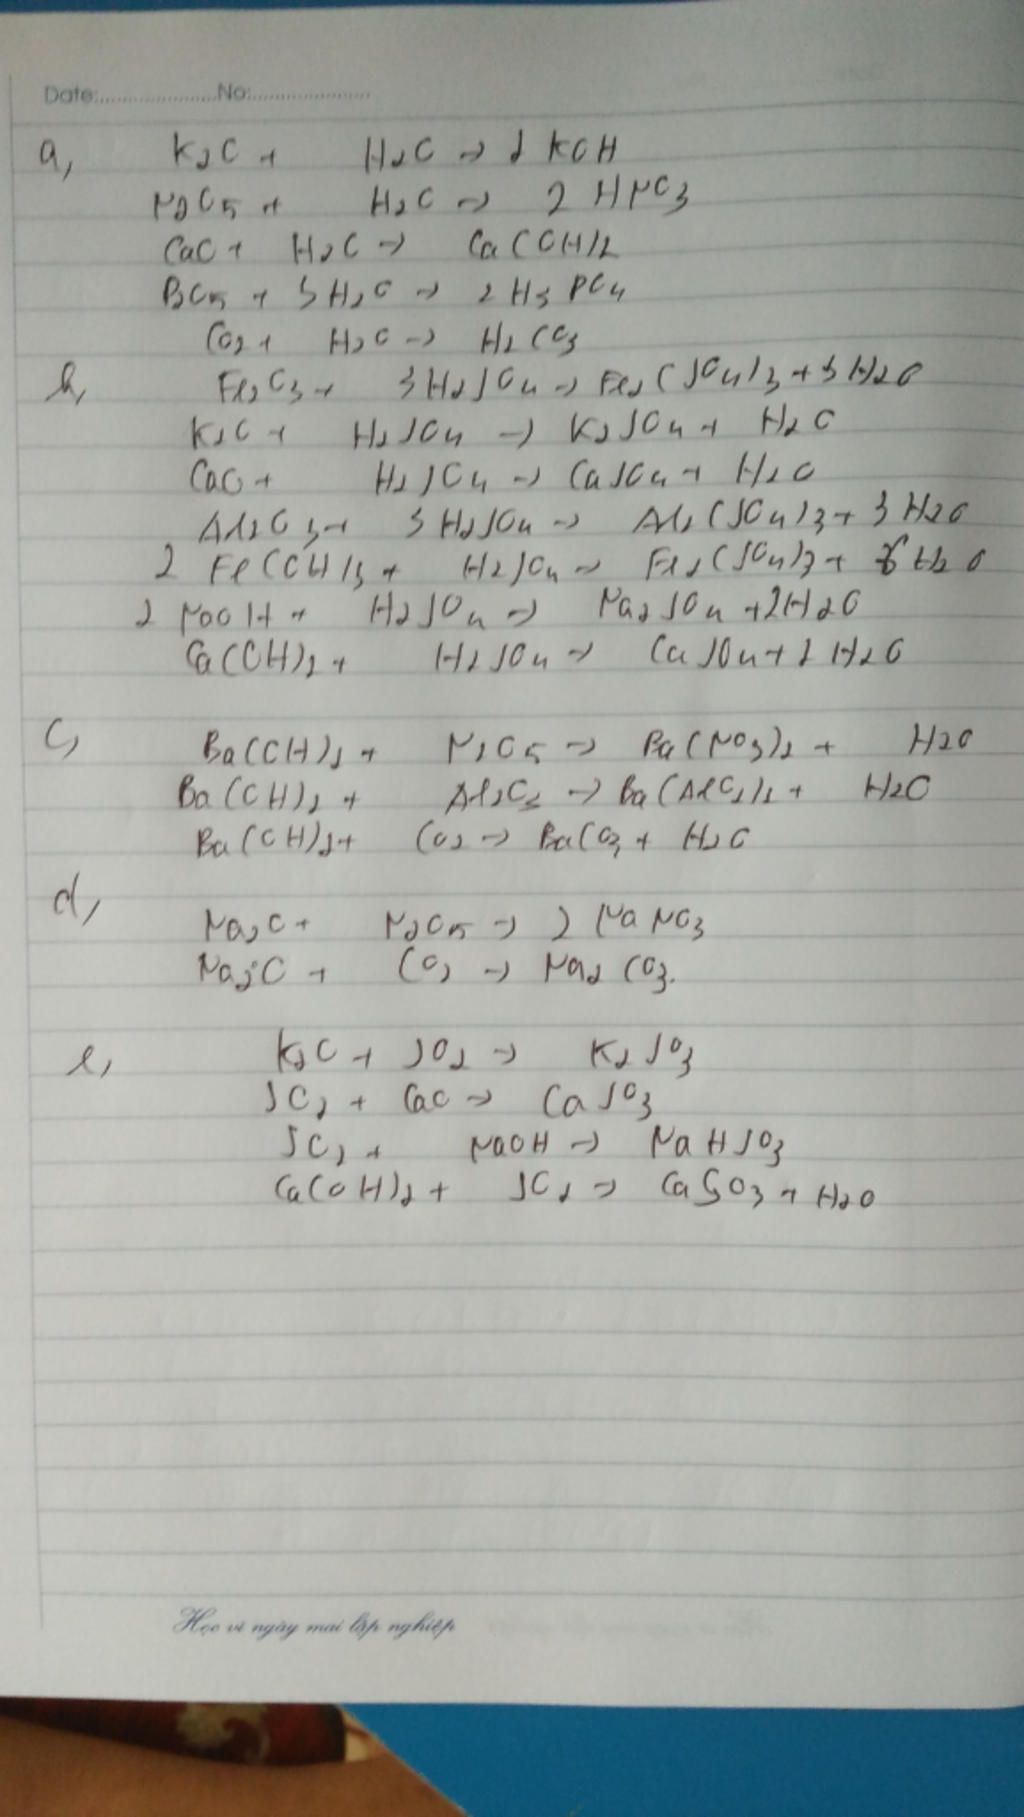 Date:....................No:....................
a, K2O + H2O → 2 KOH
N2O5 + H2O → 2 HNO3
CaO + H2O → Ca(OH)2
P2O5 + 3H2O → 2H3PO4
CO2 + H2O → H2CO3
b, Fe2O3 + 3H2SO4 → Fe2(SO4)3 + 3H2O
K2O + H2SO4 → K2SO4 + H2O
CaO + H2SO4 → CaSO4 + H2O
Al2O3 + 3H2SO4 → Al2(SO4)3 + 3H2O
2 Fe(OH)3 + H2SO4 → Fe2(SO4)3 + 6H2O
2 NaOH + H2SO4 → Na2SO4 + 2H2O
Ca(OH)2 + H2SO4 → CaSO4 + 2H2O
c, Ba(OH)2 + N2O5 → Ba(NO3)2 + H2O
Ba(OH)2 + Al2O3 → Ba(AlO2)2 + H2O
Ba(OH)2 + CO2 → BaCO3 + H2O
d,
Na2O + N2O5 → 2 NaNO3
Na2O + CO2 → Na2CO3.
e, K2O + SO2 → K2SO3
SO2 + CaO → CaSO3
SO2 + NaOH → NaHSO3
Ca(OH)2 + SO2 → CaSO3 + H2O
Học vì ngày mai lập nghiệp